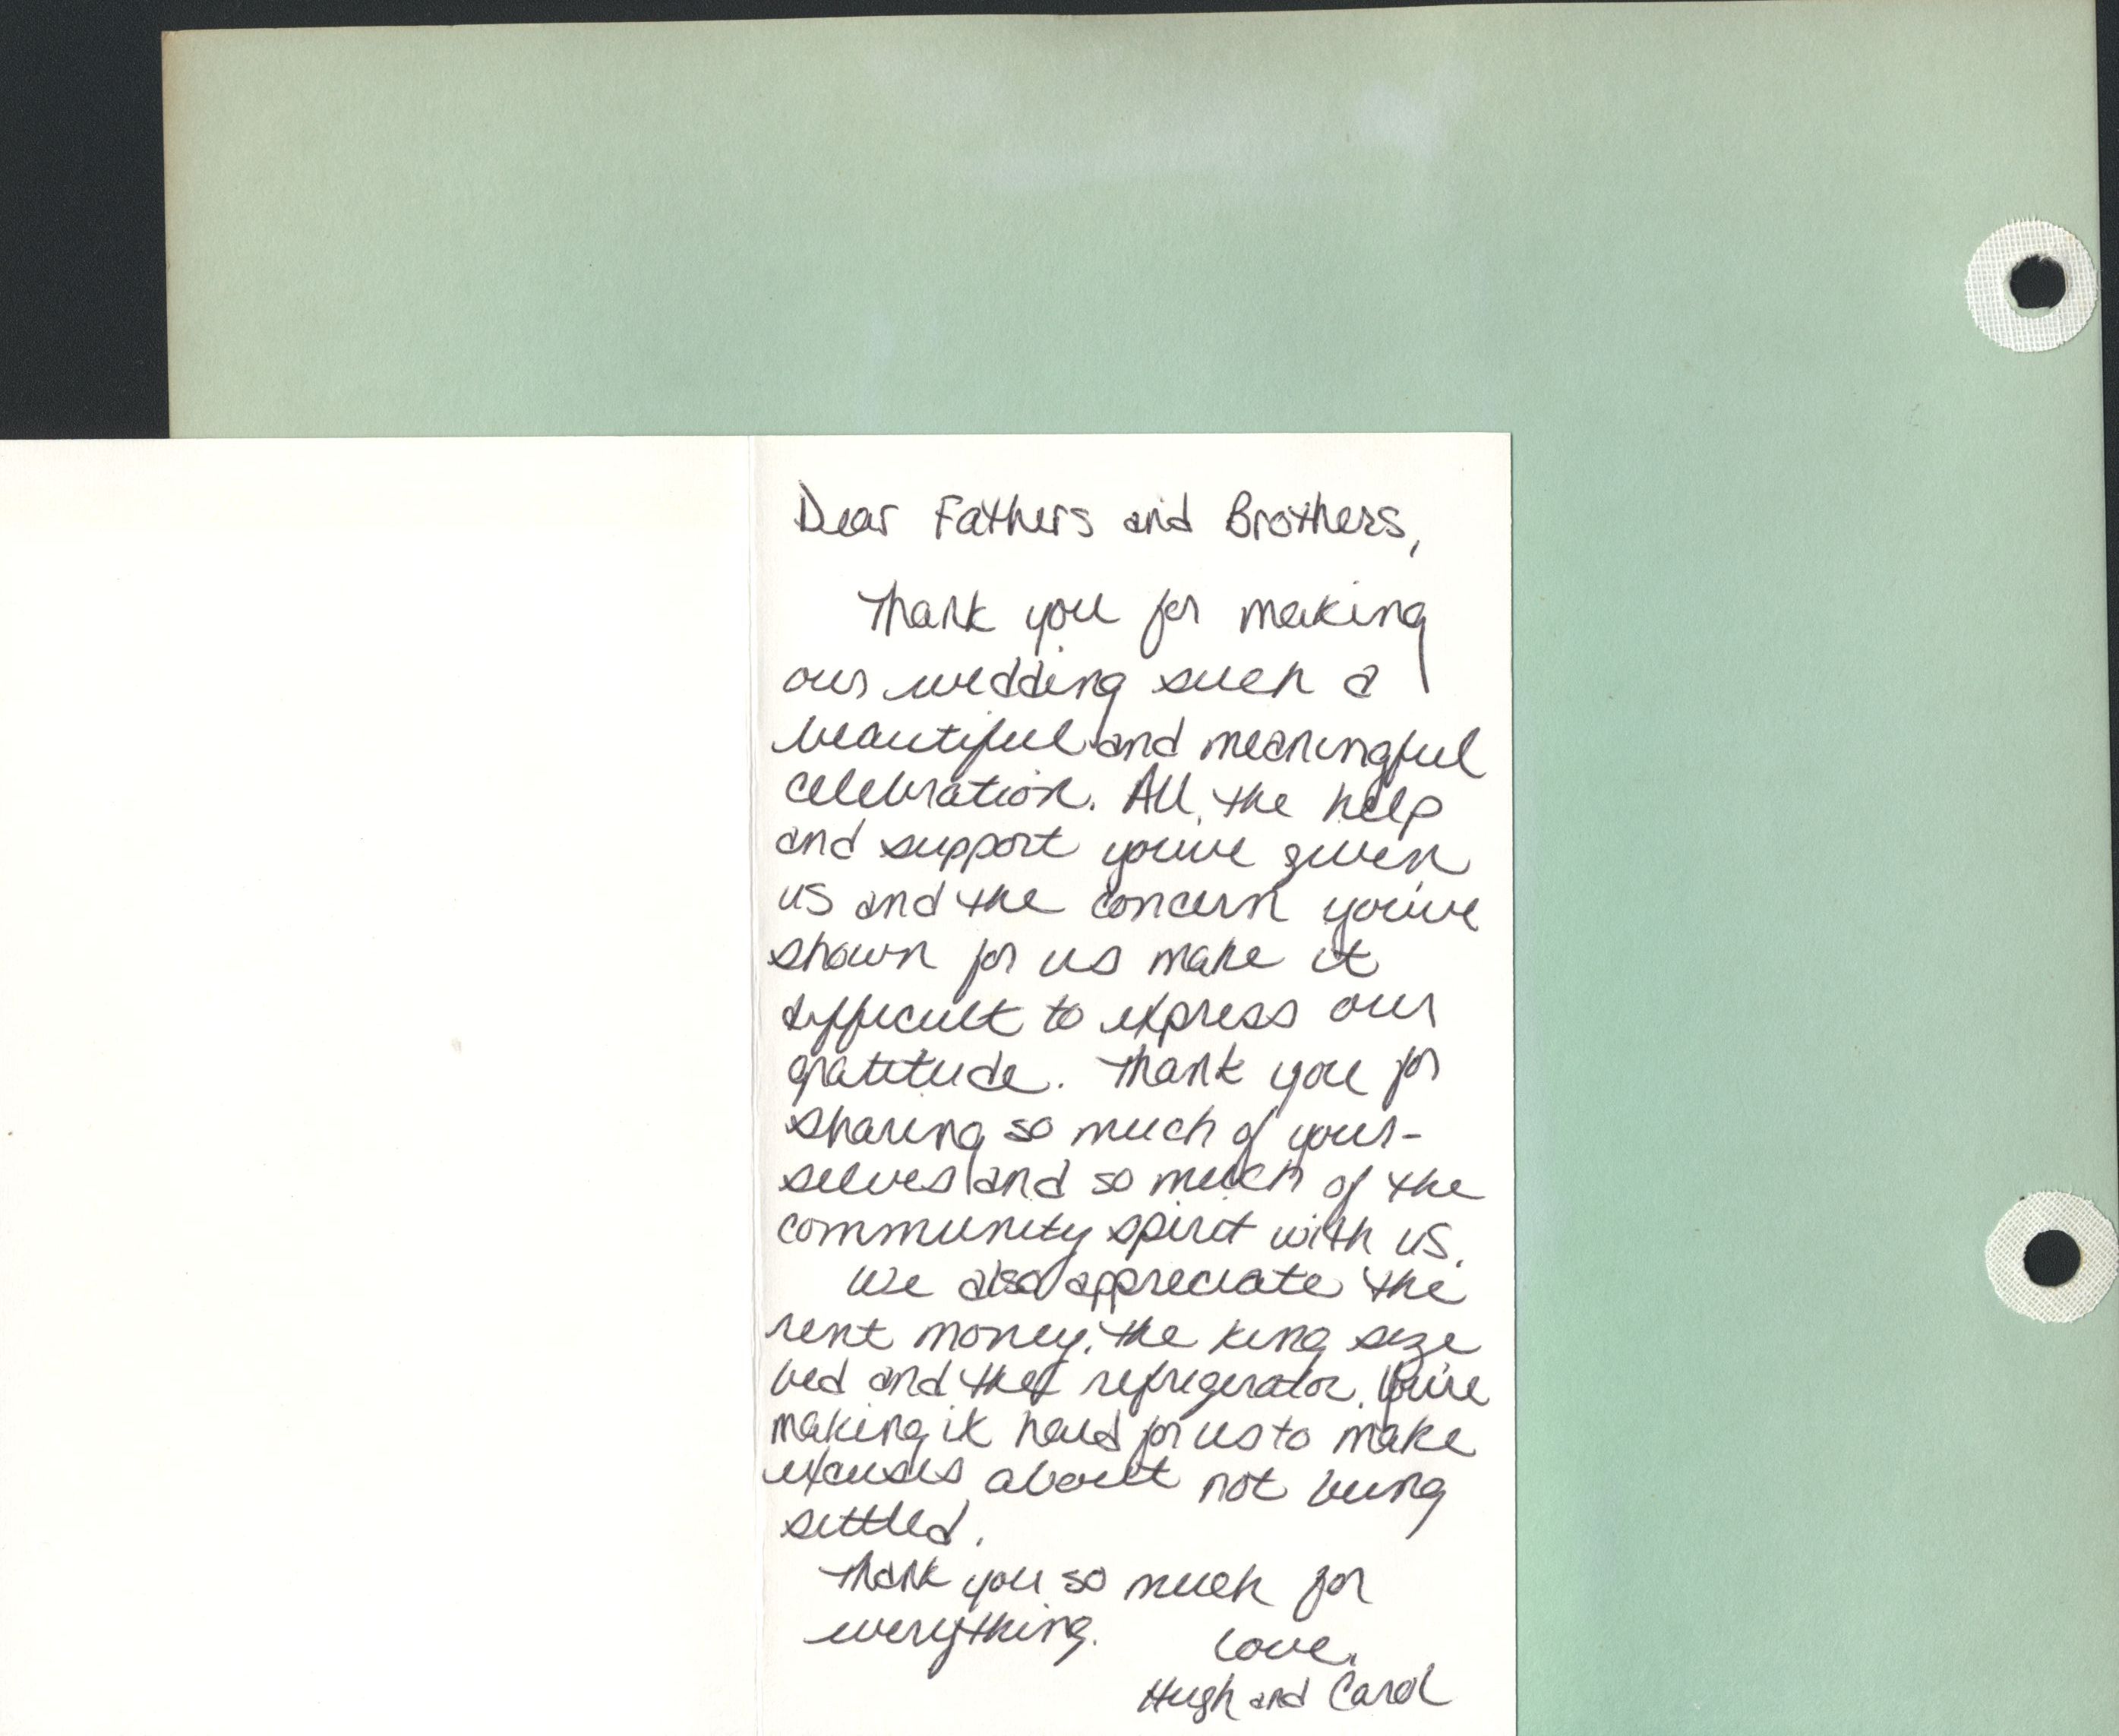 Dear Fathers and Brothers,
Thank you for making
our wedding such a
beautiful and meaningful
celebration. All the help
and support you've given
us and the concern you've
shown for us make it
difficult to express our
gratitude. Thank you for
sharing so much of your-
selves and so much of the
community spirit with us.
We also appreciate the
rent money, the king size
bed and the refrigerator. You're
making it hard for us to make
excuses about not being
settled.
Thank you so much for
everything. Love,
Hugh and Carol